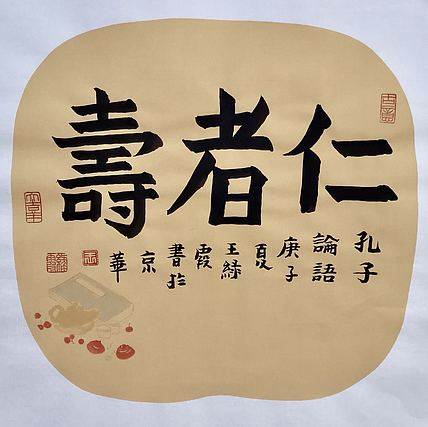 仁者壽
孔子
論語
庚子
夏
王緑
霞
書於
京
華